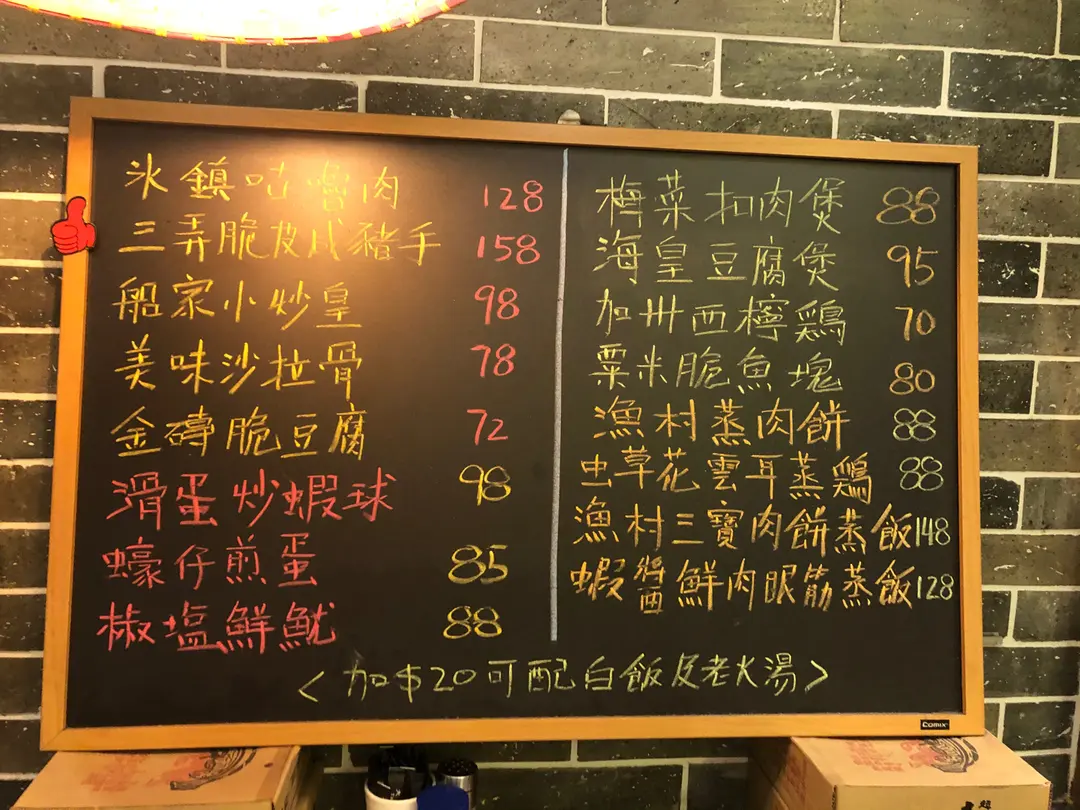 氷鎮咕嚕肉 128
三弄脆皮咸豬手 158
船家小炒皇 98
美味沙拉骨 78
金磚脆豆腐 72
滑蛋炒蝦球 98
蠔仔煎蛋 85
椒塩鮮魷 88
梅菜扣肉煲 88
海皇豆腐煲 95
加州西檸鶏 70
粟米脆魚塊 80
漁村蒸肉餅 88
虫草花雲耳蒸鶏 88
漁村三寶肉餅蒸飯 148
蝦醬鮮肉眼筋蒸飯 128
<加$20可配白飯及老火湯>
Comix